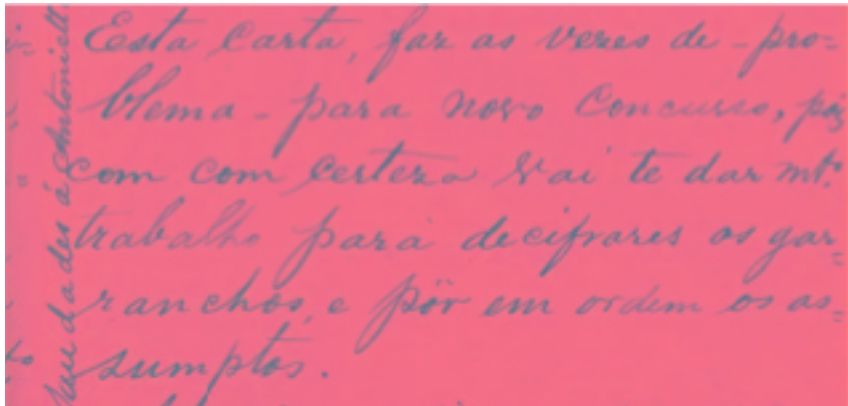 Esta carta, faz as vezes de - pro-
blema - para novo Concurso, pois
com com certeza vai te dar mt.º
trabalho para decifrares os gar-
ranchos, e pôr em ordem os as-
sumptos.
Saudades á Antoniett